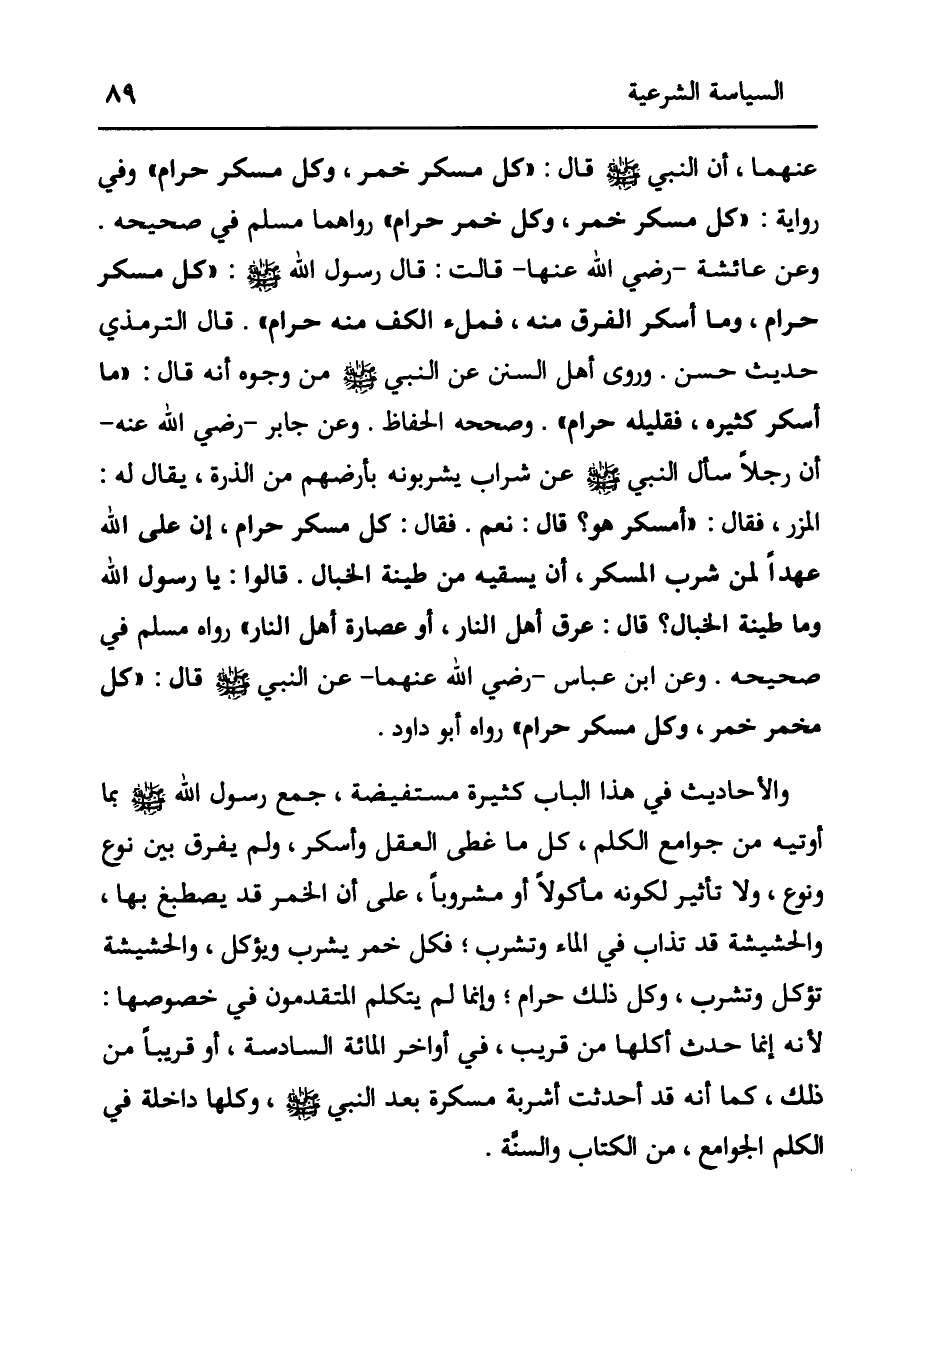 السياسة الشرعية ٨٩
عنهما ، أن النبي ﷺ قال : «كل مسكر خمر ، وكل مسكر حرام» وفي
رواية : «كل مسكر خمر ، وكل خمر حرام» رواهما مسلم في صحيحه .
وعن عائشة -رضي الله عنها- قالت : قال رسول الله ﷺ : «كل مسكر
حرام ، وما أسكر الفرق منه ، فملء الكف منه حرام» . قال الترمذي
حديث حسن . وروى أهل السنن عن النبي ﷺ من وجوه أنه قال : «ما
أسكر كثيره ، فقليله حرام» . وصححه الحفاظ . وعن جابر -رضي الله عنه-
أن رجلاً سأل النبي ﷺ عن شراب يشربونه بأرضهم من الذرة ، يقال له :
المزر ، فقال : «أمسكر هو؟ قال : نعم . فقال : كل مسكر حرام ، إن على الله
عهداً لمن شرب المسكر ، أن يسقيه من طينة الخبال . قالوا : يا رسول الله
وما طينة الخبال؟ قال : عرق أهل النار ، أو عصارة أهل النار» رواه مسلم في
صحيحه . وعن ابن عباس -رضي الله عنهما- عن النبي ﷺ قال : «كل
مخمر خمر ، وكل مسكر حرام» رواه أبو داود .
والأحاديث في هذا الباب كثيرة مستفيضة ، جمع رسول الله ﷺ بما
أوتيه من جوامع الكلم ، كل ما غطى العقل وأسكر ، ولم يفرق بين نوع
ونوع ، ولا تأثير لكونه مأكولاً أو مشروباً ، على أن الخمر قد يصطبغ بها ،
والحشيشة قد تذاب في الماء وتشرب ؛ فكل خمر يشرب ويؤكل ، والحشيشة
تؤكل وتشرب ، وكل ذلك حرام ؛ وإنما لم يتكلم المتقدمون في خصوصها :
لأنه إنما حدث أكلها من قريب ، في أواخر المائة السادسة ، أو قريباً من
ذلك ، كما أنه قد أحدثت أشربة مسكرة بعد النبي ﷺ ، وكلها داخلة في
الكلم الجوامع ، من الكتاب والسنَّة .